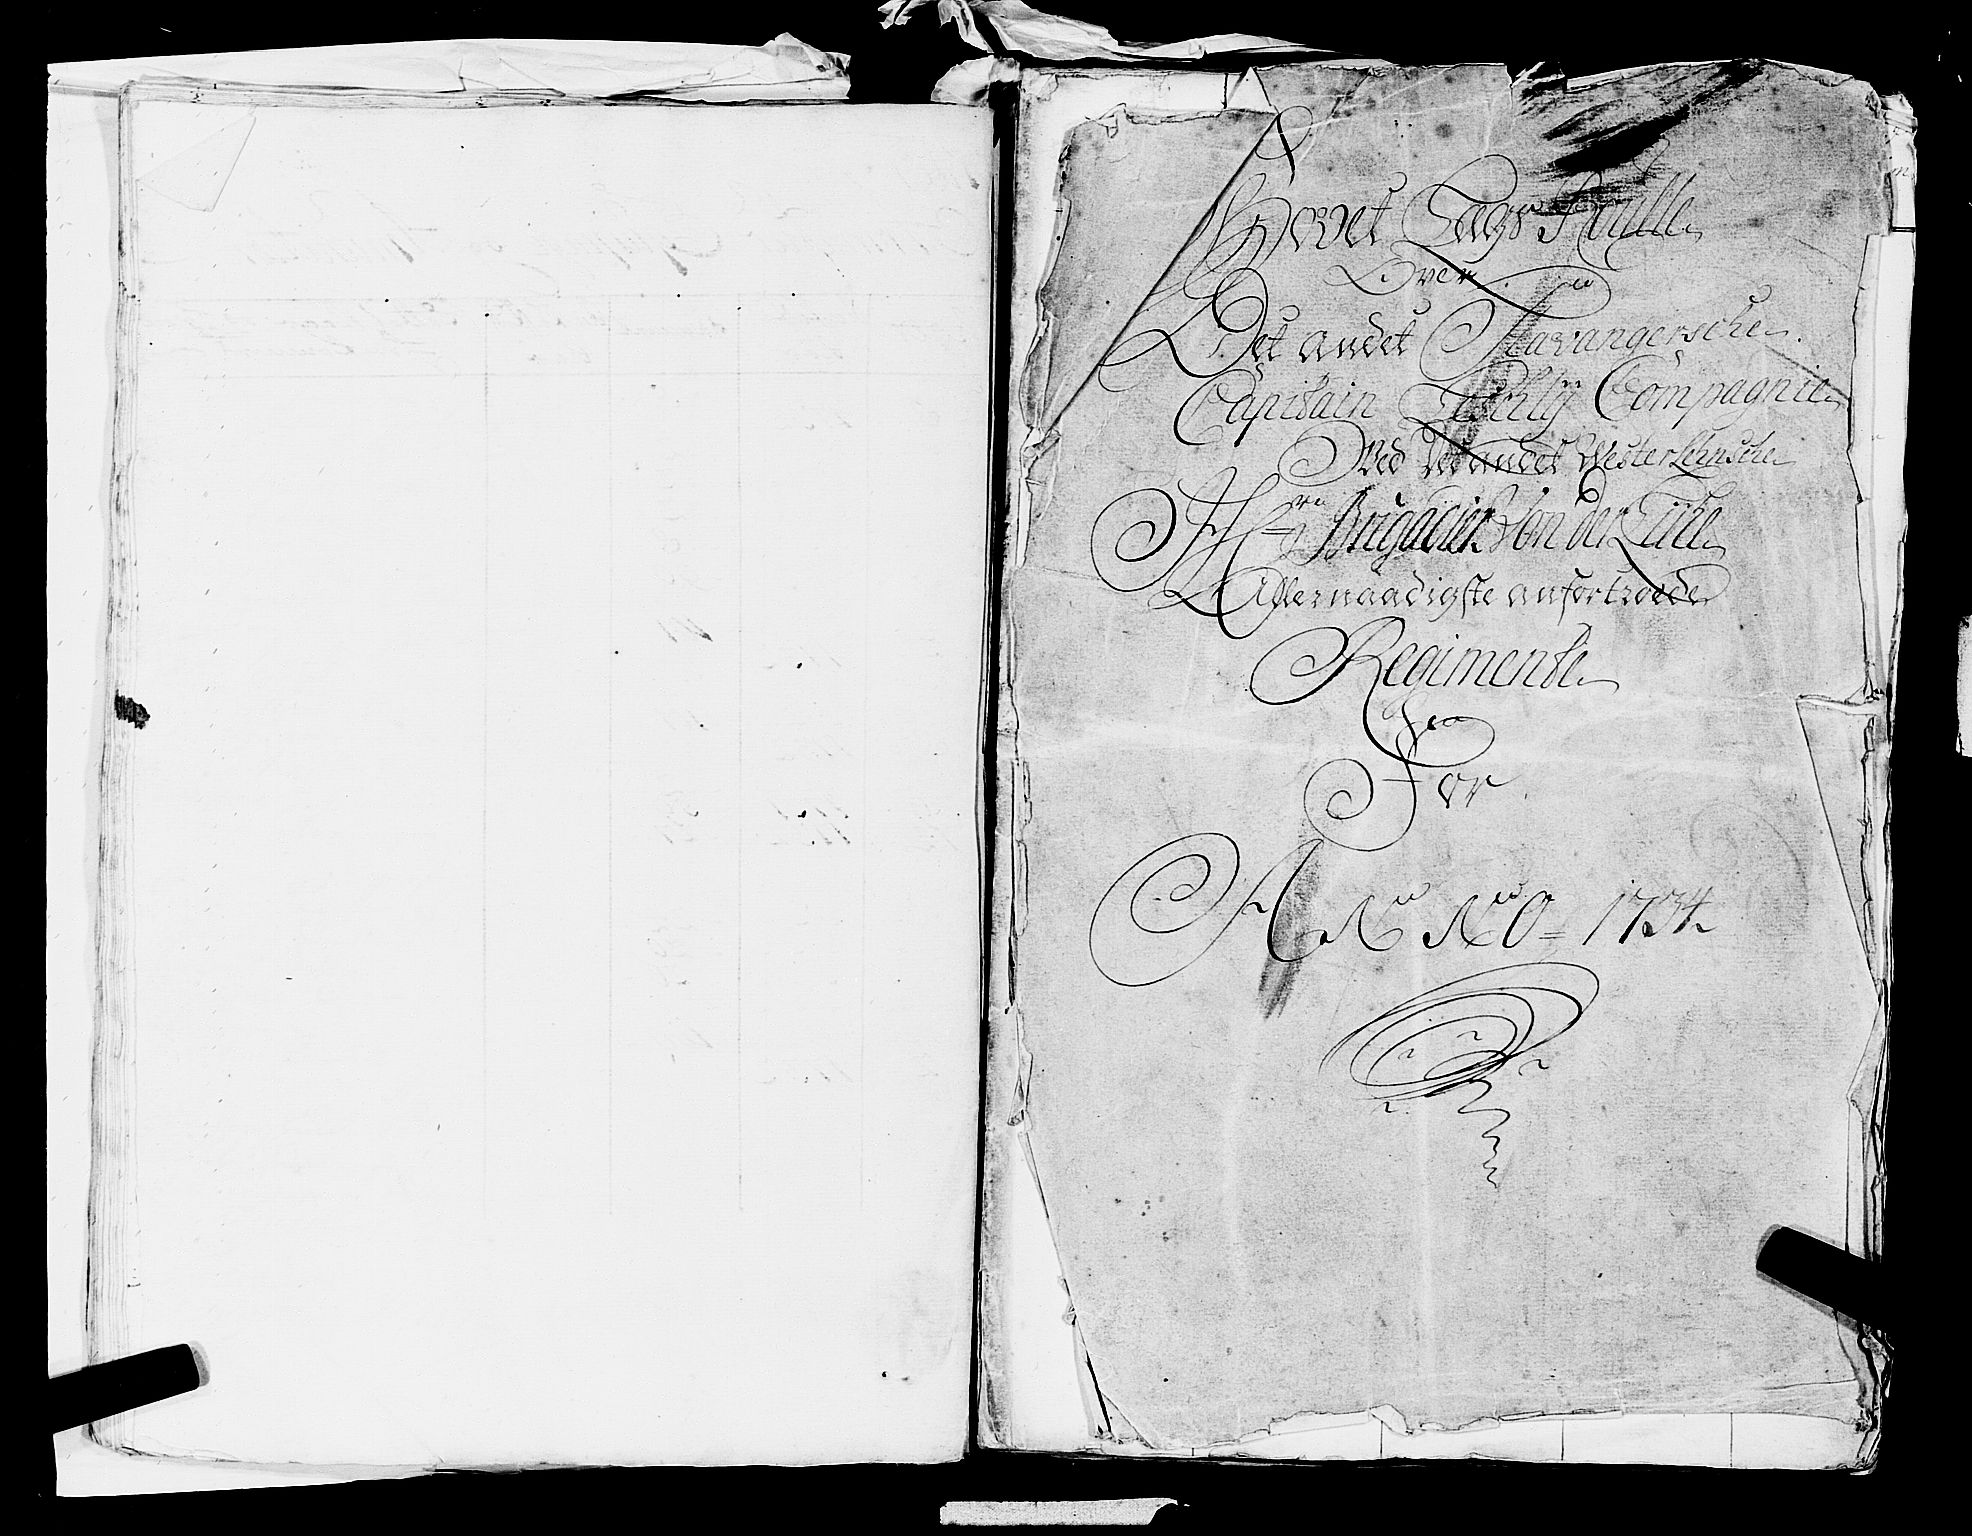 Hovet Lægs Roulle
Over
Det andet Stavangersche
Capitain Compagnie
Ved Det andet Westerlehnsche
Hrn Brigadier Von der Lühe
Allernaadigste anfortroede
Regimente
For
ANNO = 1734